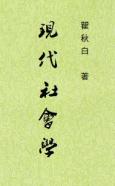 瞿秋白 著
現代社會學